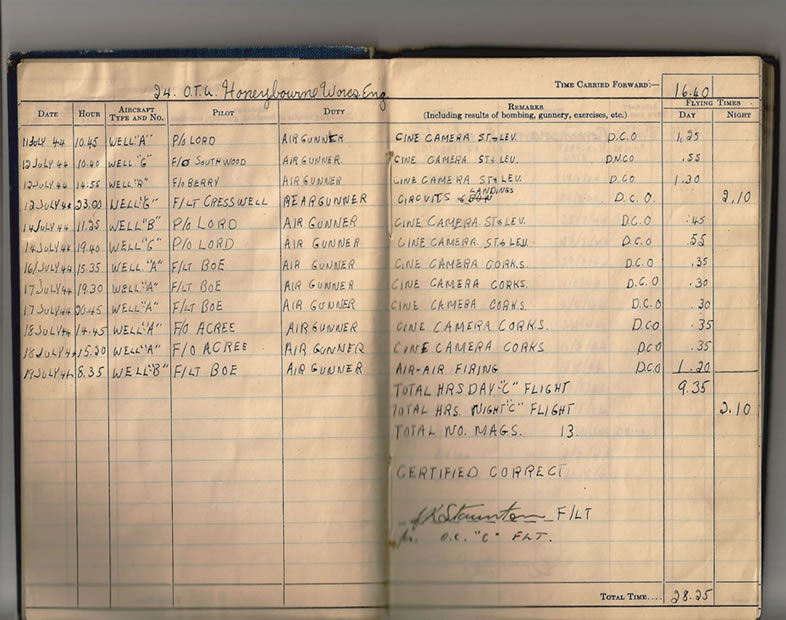 24. O.T.U. Honeybourne Worcs Eng
TIME CARRIED FORWARD:— 16.40
DATE HOUR AIRCRAFT TYPE AND NO. PILOT DUTY REMARKS (Including results of bombing, gunnery, exercises, etc.) FLYING TIMES DAY NIGHT
11 JULY 44 10.45 WELL "A" P/O LORD AIR GUNNER CINE CAMERA ST & LEV. D.C.O 1.25
12 JULY 44 10.40 WELL "G" F/O SOUTHWOOD AIR GUNNER CINE CAMERA ST & LEV. D.N.CO .55
12 JULY 44 14.55 WELL "R" F/O BERRY AIR GUNNER CINE CAMERA ST & LEV. D.CO 1.30
12 JULY 44 23.00 WELL "G" F/LT CRESSWELL REARGUNNER CIRCUITS & LANDINGS D.C.O. 2.10
14 JULY 44 11.25 WELL "B" P/O LORD AIR GUNNER CINE CAMERA ST & LEV. D.C.O :45
14 JULY 44 19.40 WELL "G" P/O LORD AIR GUNNER CINE CAMERA ST & LEV. D.C.O .55
16/JULY 44 15.35 WELL. "A" F/LT BOE AIR GUNNER CINE CAMERA CORKS. D.C.O .35
17 JULY 44 19.30 WELL "A" F/LT BOE AIR GUNNER CINE CAMERA CORKS. D.C.O .30
17 JULY 44 20.45 WELL "A" F/LT BOE AIR GUNNER CINE CAMERA CORKS. D.C.O .30
18 JULY 44 14.45 WELL "A" F/O ACREE AIR GUNNER CINE CAMERA CORKS. D.CO .35
18 JULY 44 15.20 WELL "A" F/O ACREE AIR GUNNER CINE CAMERA CORKS D.C.O .35
19 JULY 44 8.35 WELL "B" F/LT BOE AIR GUNNER AIR-AIR FIRING D.C.O 1.20
TOTAL HRS DAY "C" FLIGHT 9.35
TOTAL HRS. NIGHT "C" FLIGHT 2.10
TOTAL NO. MAGS. 13.
CERTIFIED CORRECT
Staunton F/LT
O.C. "C" FLT.
TOTAL TIME.... 28.25